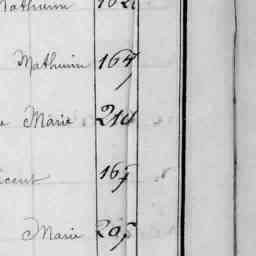 Mathurin
Mathurin 167
Marie 214
167
Marie 207